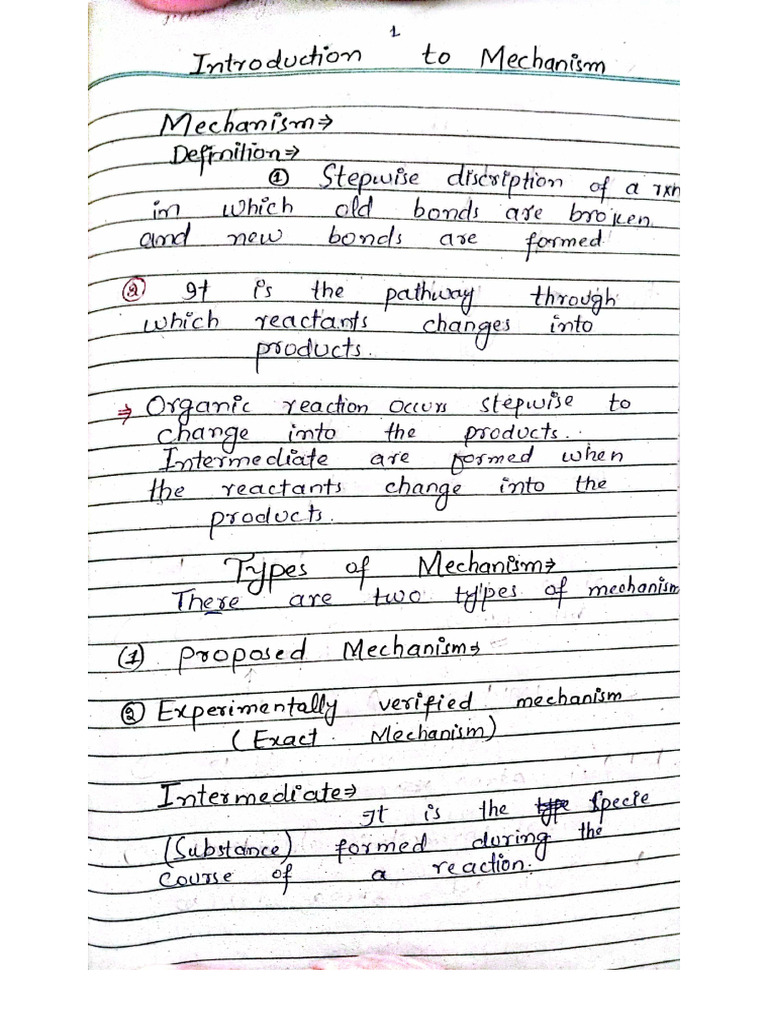 1
Introduction to Mechanism
Mechanism⇒
Definition⇒
① Stepwise discription of a rxn
in which old bonds are broken
and new bonds are formed
② It is the pathway through
which reactants changes into
products.
⇒ Organic reaction occurs stepwise to
change into the products.
Intermediate are formed when
the reactants change into the
products.
Types of Mechanism⇒
There are two types of mechanism
(1) Proposed Mechanism⇒
② Experimentally verified mechanism
(Exact Mechanism)
Intermediate⇒
It is the type specie
(Substance) formed during the
course of a reaction.